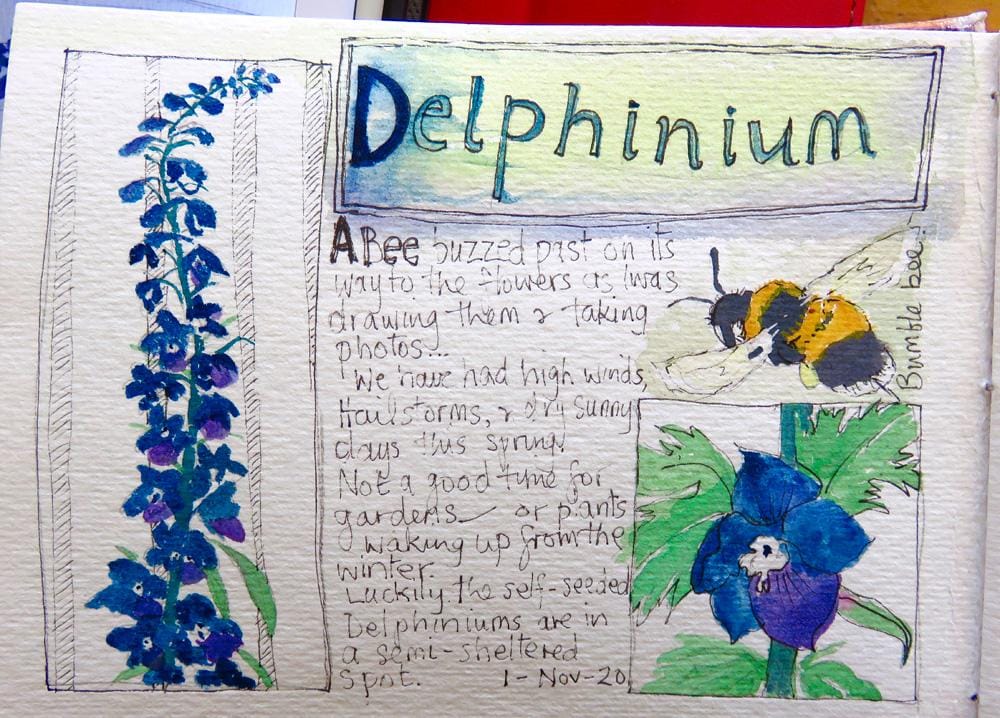 Delphinium
A Bee buzzed past on its
way to the flowers as I was
drawing them & taking
photos...
We have had high winds,
Hailstorms, & dry sunny
days this spring!
Not a good time for
gardens — or plants
waking up from the
winter.
Luckily the self-seeded
Delphiniums are in
a semi-sheltered
Spot. 1-Nov-20
Bumble bee.